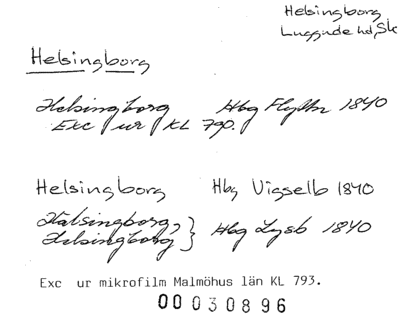 Helsingborg
Luggude hd, Sk
Helsingborg
Helsingborg Hbg Flyttn 1840
Exc ur KL 790.
Helsingborg Hbg Vigselb 1840
Halsingborg, } Hbg Lysb 1840
Helsingborg
Exc ur mikrofilm Malmöhus län KL 793.
00030896